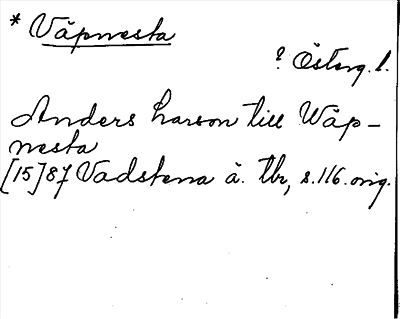 * Väpnesta
? Österg. l.
Anders Larson till Wäp-
nesta
[15]87 Vadstena ä. tbr, s. 116. orig.